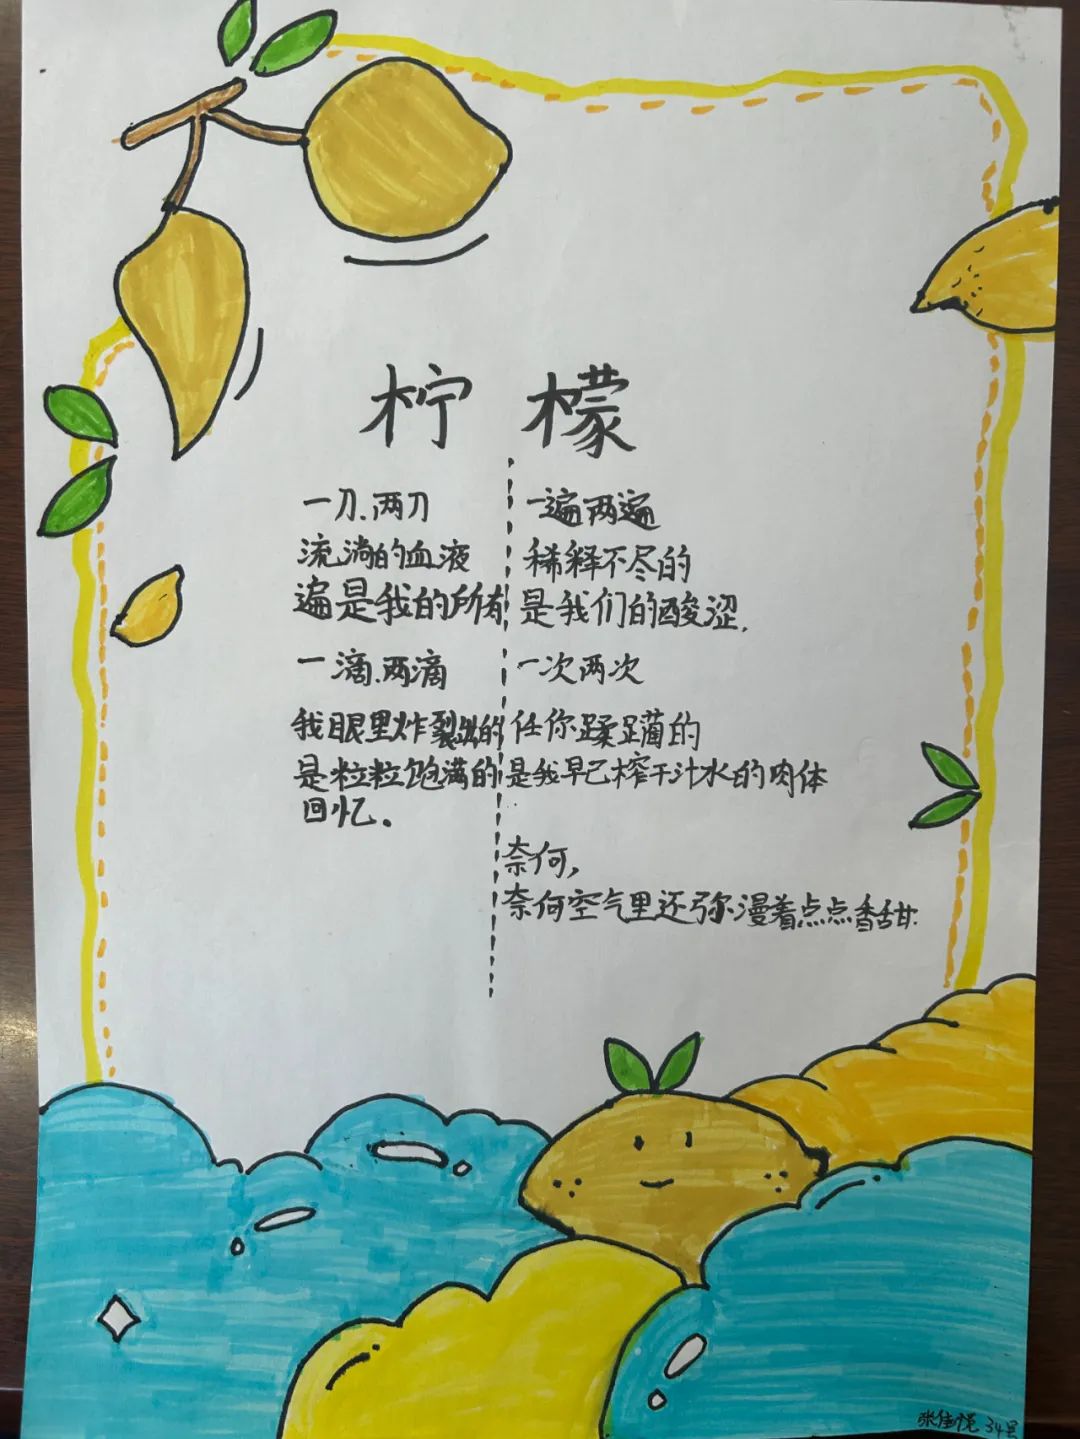 柠檬
一刀.两刀
流淌的血液
遍是我的所有
一滴.两滴
我眼里炸裂出的
是粒粒饱满的
回忆。
一遍两遍
稀释不尽的
是我们的酸涩.
一次两次
任你蹂躏的
是我早已榨干汁水的肉体
奈何,
奈何空气里还弥漫着点点香甜.
34号